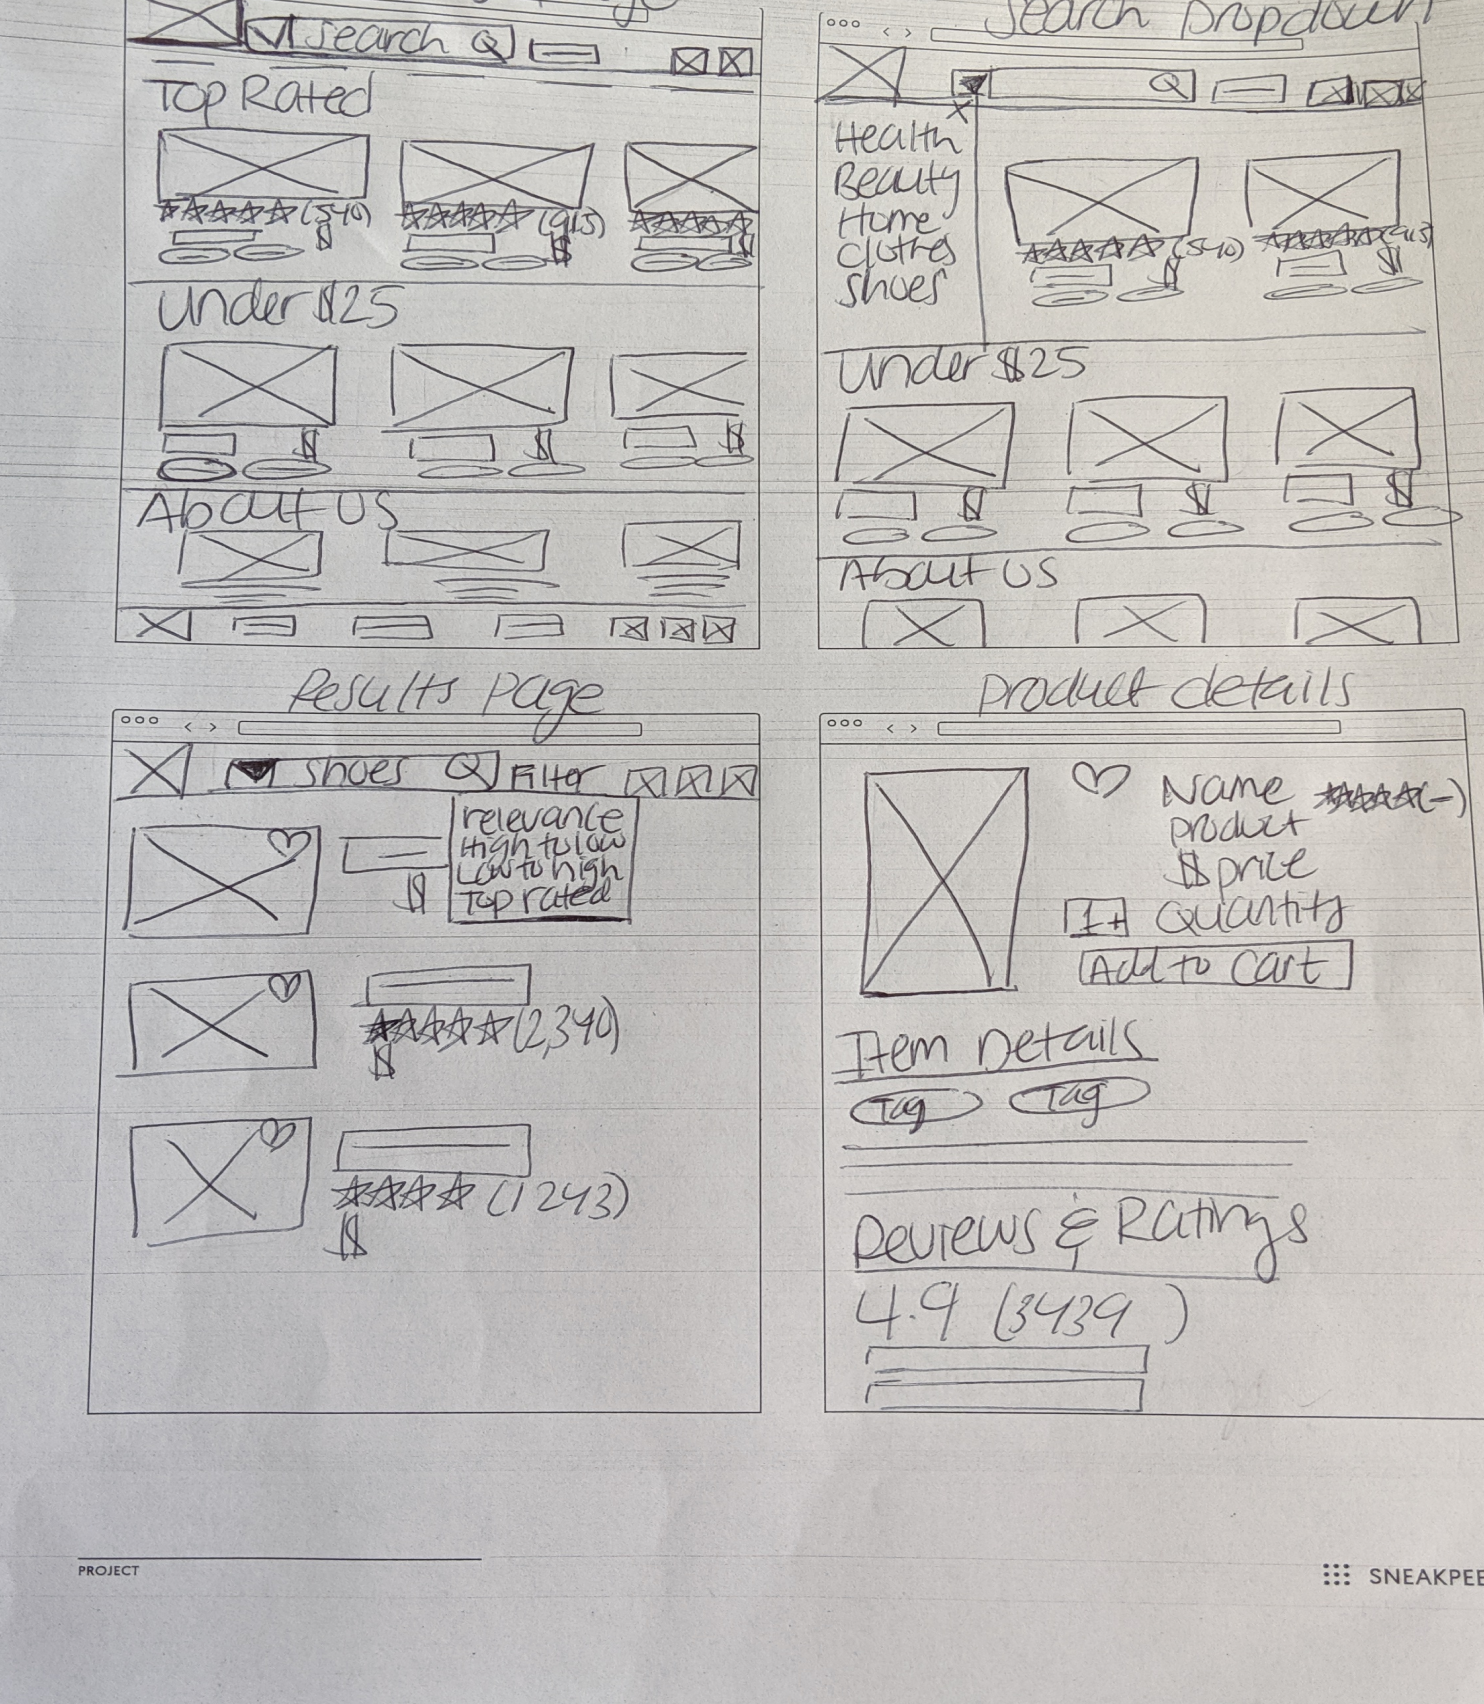 Search
Top Rated
(540)
$
(913)
$
$
Under $25
$
$
$
About US
Search Dropdown
Health
Beauty
Home
Clothes
Shoes
(540)
$
(913)
$
Under $25
$
$
$
About US
Results Page
Shoes
Filter
relevance
High to low
Low to high
Top rated
$
(2,340)
$
(1243)
$
product details
Name
(-)
product
$ price
1+ Quantity
Add to cart
Item Details
Tag Tag
Reviews & Ratings
4.9 (3439 )
PROJECT
SNEAKPEE